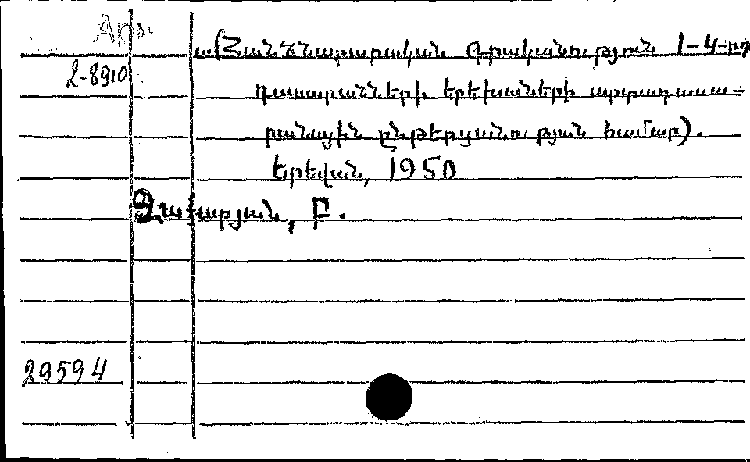 Հանձնարարական գրականություն 1-4-րդ
2-8910
դասարանների երեխաների արտադասա-
րանային ընթերցանության համար).
Երեվան, 1950
Զաքարյան, Բ.
29594